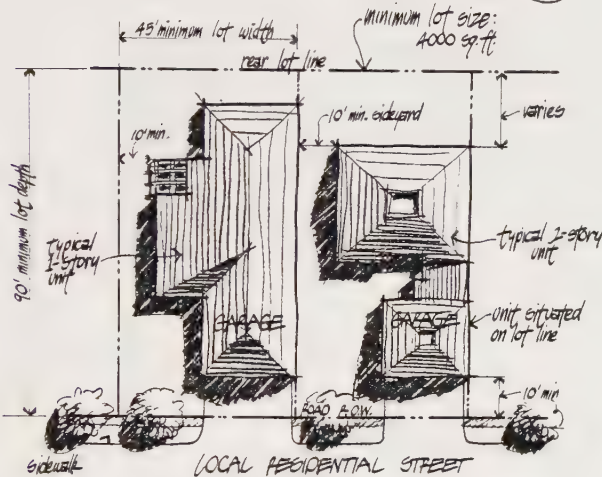 45' minimum lot width
minimum lot size:
4000 sq. ft.
rear lot line
10' min.
10' min. sideyard
varies
90' minimum lot depth
typical
1-story
unit
typical 2-story
unit
GARAGE
GARAGE
unit situated
on lot line
10' min
ROAD R.O.W.
sidewalk
LOCAL RESIDENTIAL STREET